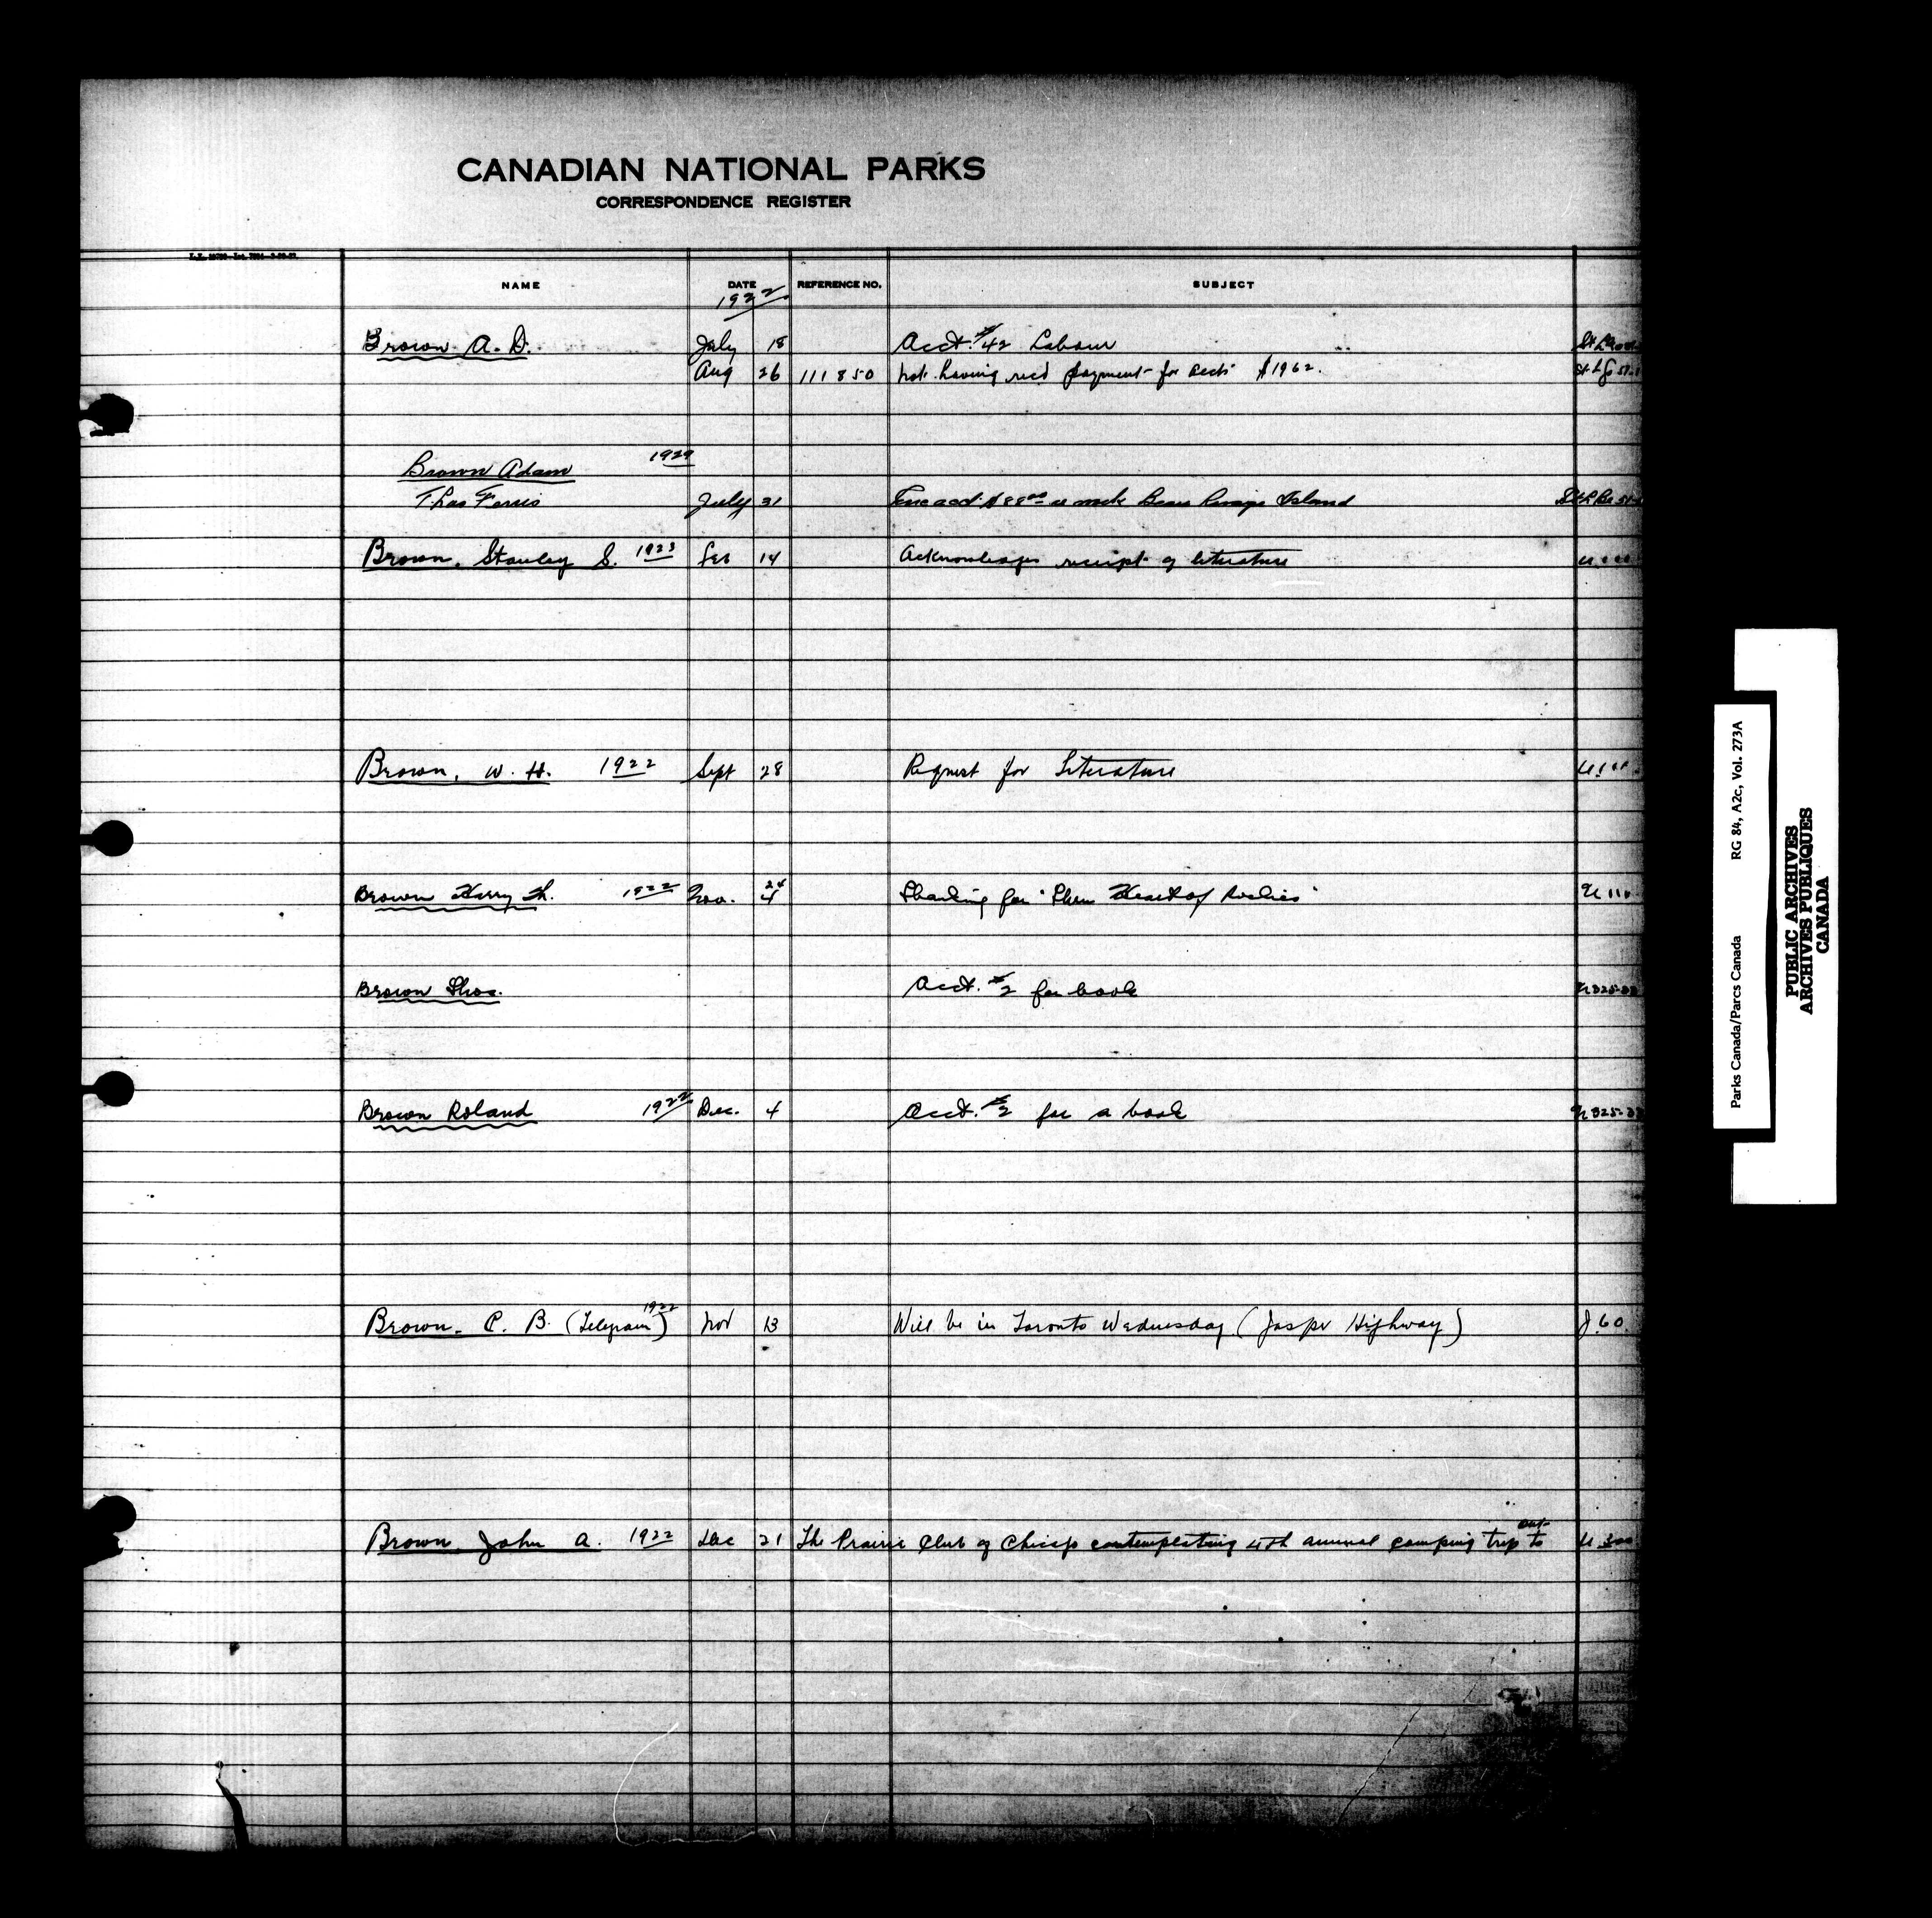 CANADIAN NATIONAL PARKS
CORRESPONDENCE REGISTER
NAME DATE REFERENCE NO. SUBJECT
1922
Brown A. D. July 18 Acct. #42 Labour
Aug 26 111850 not having rec'd payment for acct $1962.
Brown Adam 1929
Thos Ferris July 31 acct $88.00 work Island
Brown, Stanley S. 1923 14 Acknowledges receipt of literature
Brown, W. H. 1922 Sept 28 Request for Literature
Brown Harry 1922 Nov. 24 for "
Brown Thos. Acct. #2 for book
Brown Roland 1922 Dec. 4 Acct. #2 for a book
Brown. C. B. (Telegram) 1922 Nov 13 Will be in Toronto Wednesday (Jasper Highway) J.60.
Brown John A. 1922 Dec 21 The Prairie Club of Chicago contemplating 4th annual camping trip out to U.300
Parks Canada/Parcs Canada RG 84, A2c, Vol. 273A
PUBLIC ARCHIVES
ARCHIVES PUBLIQUES
CANADA